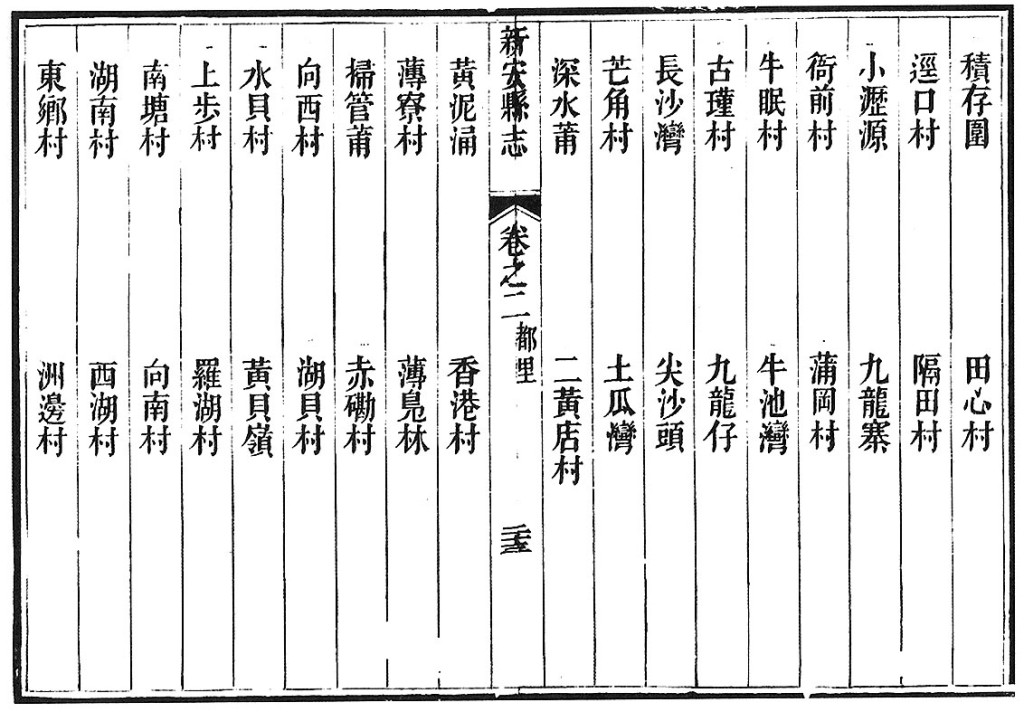 積存圍 田心村
逕口村 隔田村
小瀝源 九龍寨
衙前村 蒲岡村
牛眠村 牛池灣
古瑾村 九龍仔
長沙灣 尖沙頭
芒角村 土瓜灣
深水莆 二黃店村
新安縣志 卷之二 都里 二十五
黃泥涌 香港村
薄寮村 薄鳧林
掃管莆 赤磡村
向西村 湖貝村
水貝村 黃貝嶺
上步村 羅湖村
南塘村 向南村
湖南村 西湖村
東鄉村 洲邊村